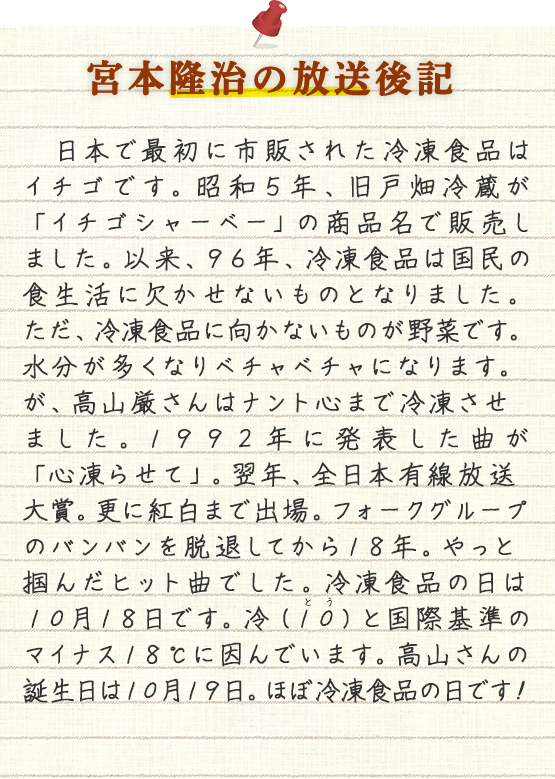 宮本隆治の放送後記
日本で最初に市販された冷凍食品は
イチゴです。昭和5年、旧戸畑冷蔵が
「イチゴシャーベー」の商品名で販売し
ました。以来、96年、冷凍食品は国民の
食生活に欠かせないものとなりました。
ただ、冷凍食品に向かないものが野菜です。
水分が多くなりベチャベチャになります。
が、高山厳さんはナント心まで冷凍させ
ました。1992年に発表した曲が
「心凍らせて」。翌年、全日本有線放送
大賞。更に紅白まで出場。フォークグループ
のバンバンを脱退してから18年。やっと
掴んだヒット曲でした。冷凍食品の日は
10月18日です。冷(10)と国際基準の
とう
マイナス18℃に因んでいます。高山さんの
誕生日は10月19日。ほぼ冷凍食品の日です!